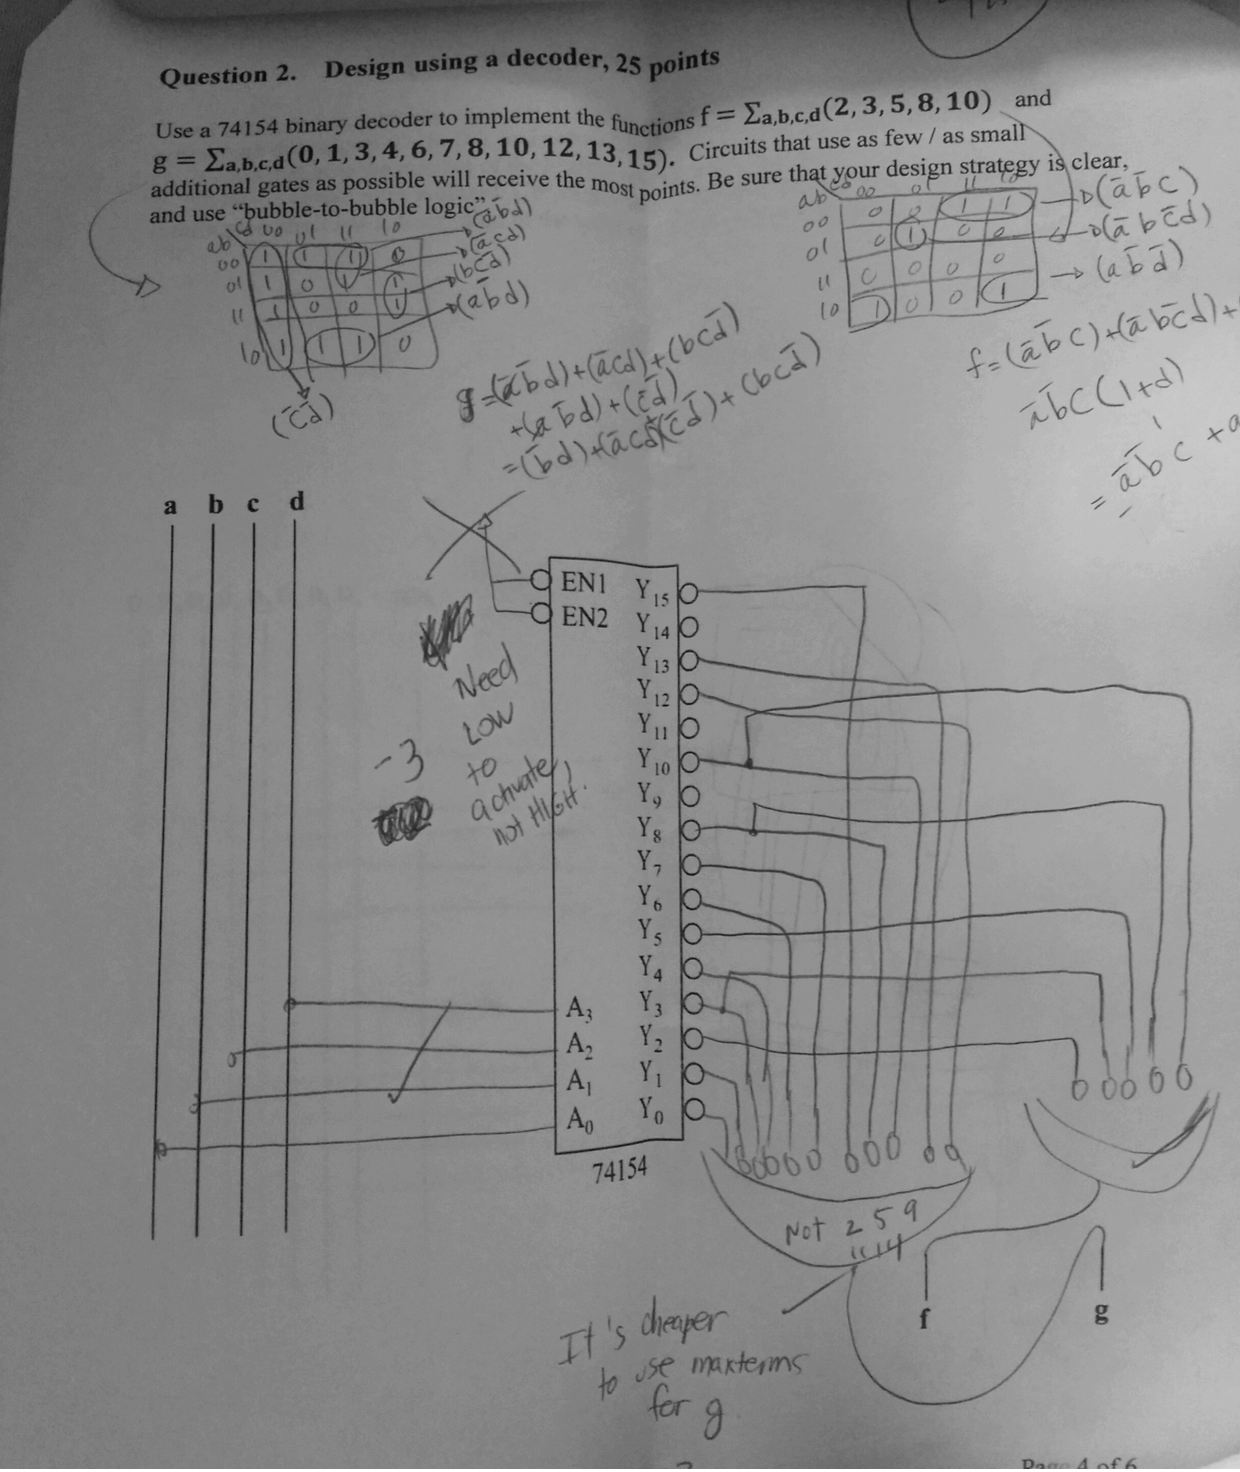 Question 2. Design using a decoder, 25 points
Use a 74154 binary decoder to implement the functions f = Σa,b,c,d(2, 3, 5, 8, 10) and
g = Σa,b,c,d(0, 1, 3, 4, 6, 7, 8, 10, 12, 13, 15). Circuits that use as few / as small
additional gates as possible will receive the most points. Be sure that your design strategy is clear,
and use “bubble-to-bubble logic”.
ab cd 00 01 11 10
00 1 1 1 0
01 1 0 1 1
11 1 0 0 1
10 1 1 1 0
(āb̄d)
(ācd)
(bcd̄)
(ab̄d)
(c̄d̄)
ab cd 00 01 11 10
00 0 0 1 1
01 0 1 0 0
11 0 0 0 0
10 1 0 0 1
(āb̄c)
(ābc̄d)
(ab̄d̄)
g=(āb̄d)+(ācd)+(bcd̄)
+(ab̄d)+(c̄d̄)
=(b̄d)+(ācd)+(c̄d̄)+(bcd̄)
f=(āb̄c)+(ābc̄d)+
āb̄c(1+d)
1
=āb̄c+a
a b c d
EN1
EN2
Y15
Y14
Y13
Y12
Y11
Y10
Y9
Y8
Y7
Y6
Y5
Y4
Y3
Y2
Y1
Y0
A3
A2
A1
A0
74154
Need
Low
to
activate,
not HIGH.
-3
Not 2 5 9
11 14
It's cheaper
to use maxterms
for g
f
g
Page 4 of 6